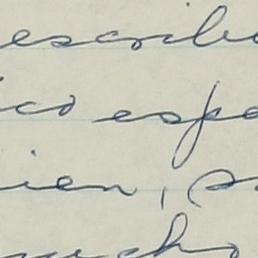 escrib
ico espe
ien, s
mucho